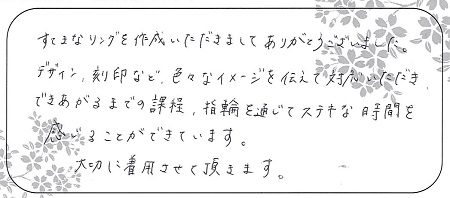 すてきなリングを作成いただきましてありがとうございました。
デザイン、刻印など、色々なイメージを伝えて対応いただき、
できあがるまでの課程、指輪を通じてステキな時間を
感じることができています。
大切に着用させて頂きます。